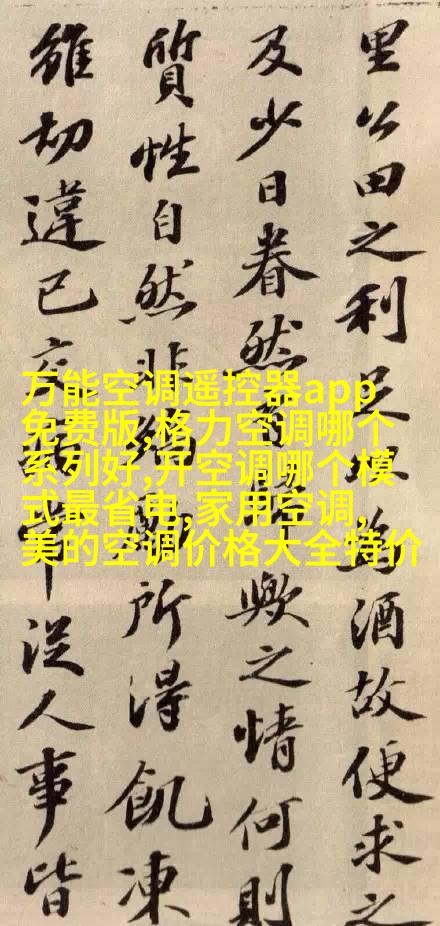 里公田之利足為酒故便求之
及少日眷然歟之情何則
質性自然非所得飢凍
雖切違己交從人事皆
万能空调遥控器app
免费版,格力空调哪个
系列好,开空调哪个模
式最省电,家用空调,
美的空调价格大全特价